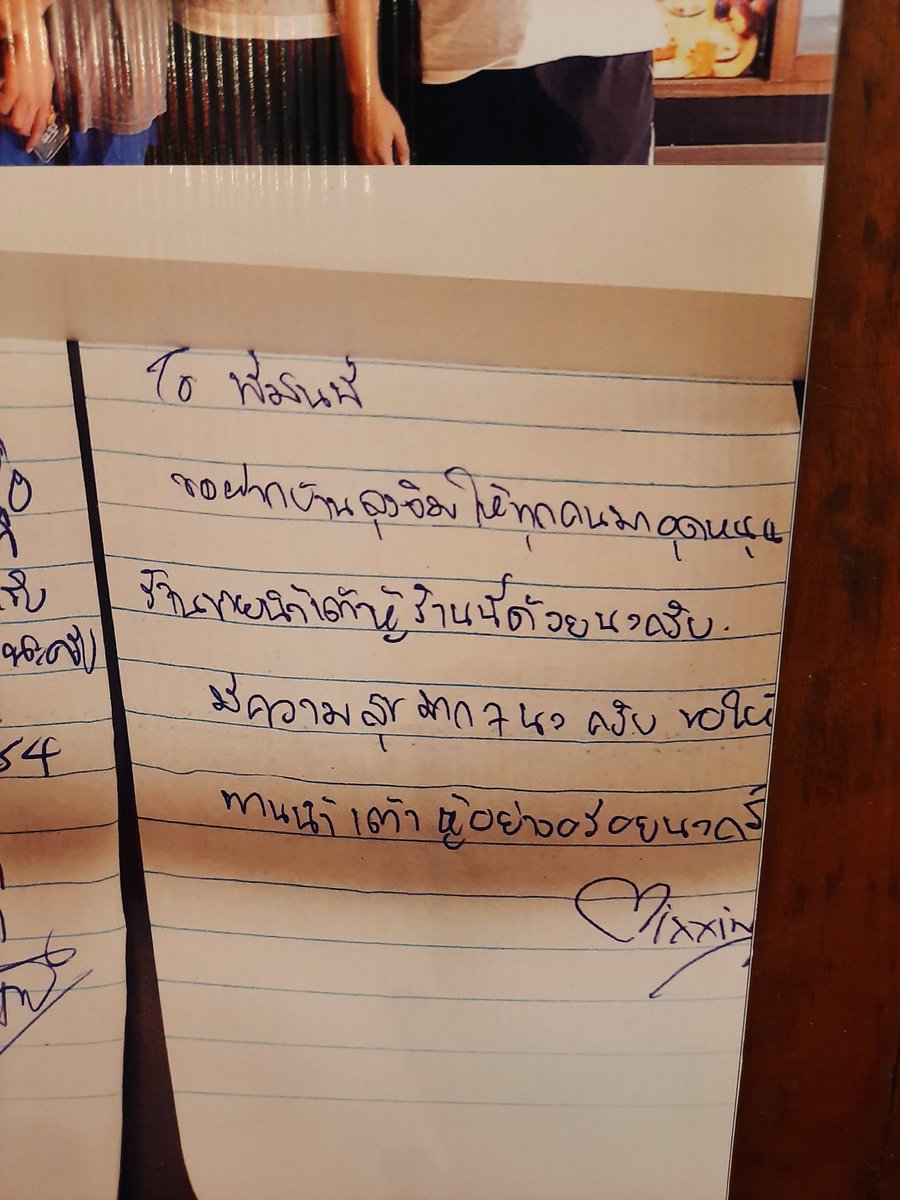 To พี่มันนี่
ขอฝากบ้านลุงอิมให้ทุกคนมาอุดหนุน
ร้านขายน้ำเต้าหู้ ร้านนี้ด้วยนะครับ.
มีความสุขมากๆ นะ ครับ ขอให้
ทานน้ำเต้าหู้อย่างอร่อยนะครั
Mixxiw
นะครับ
54